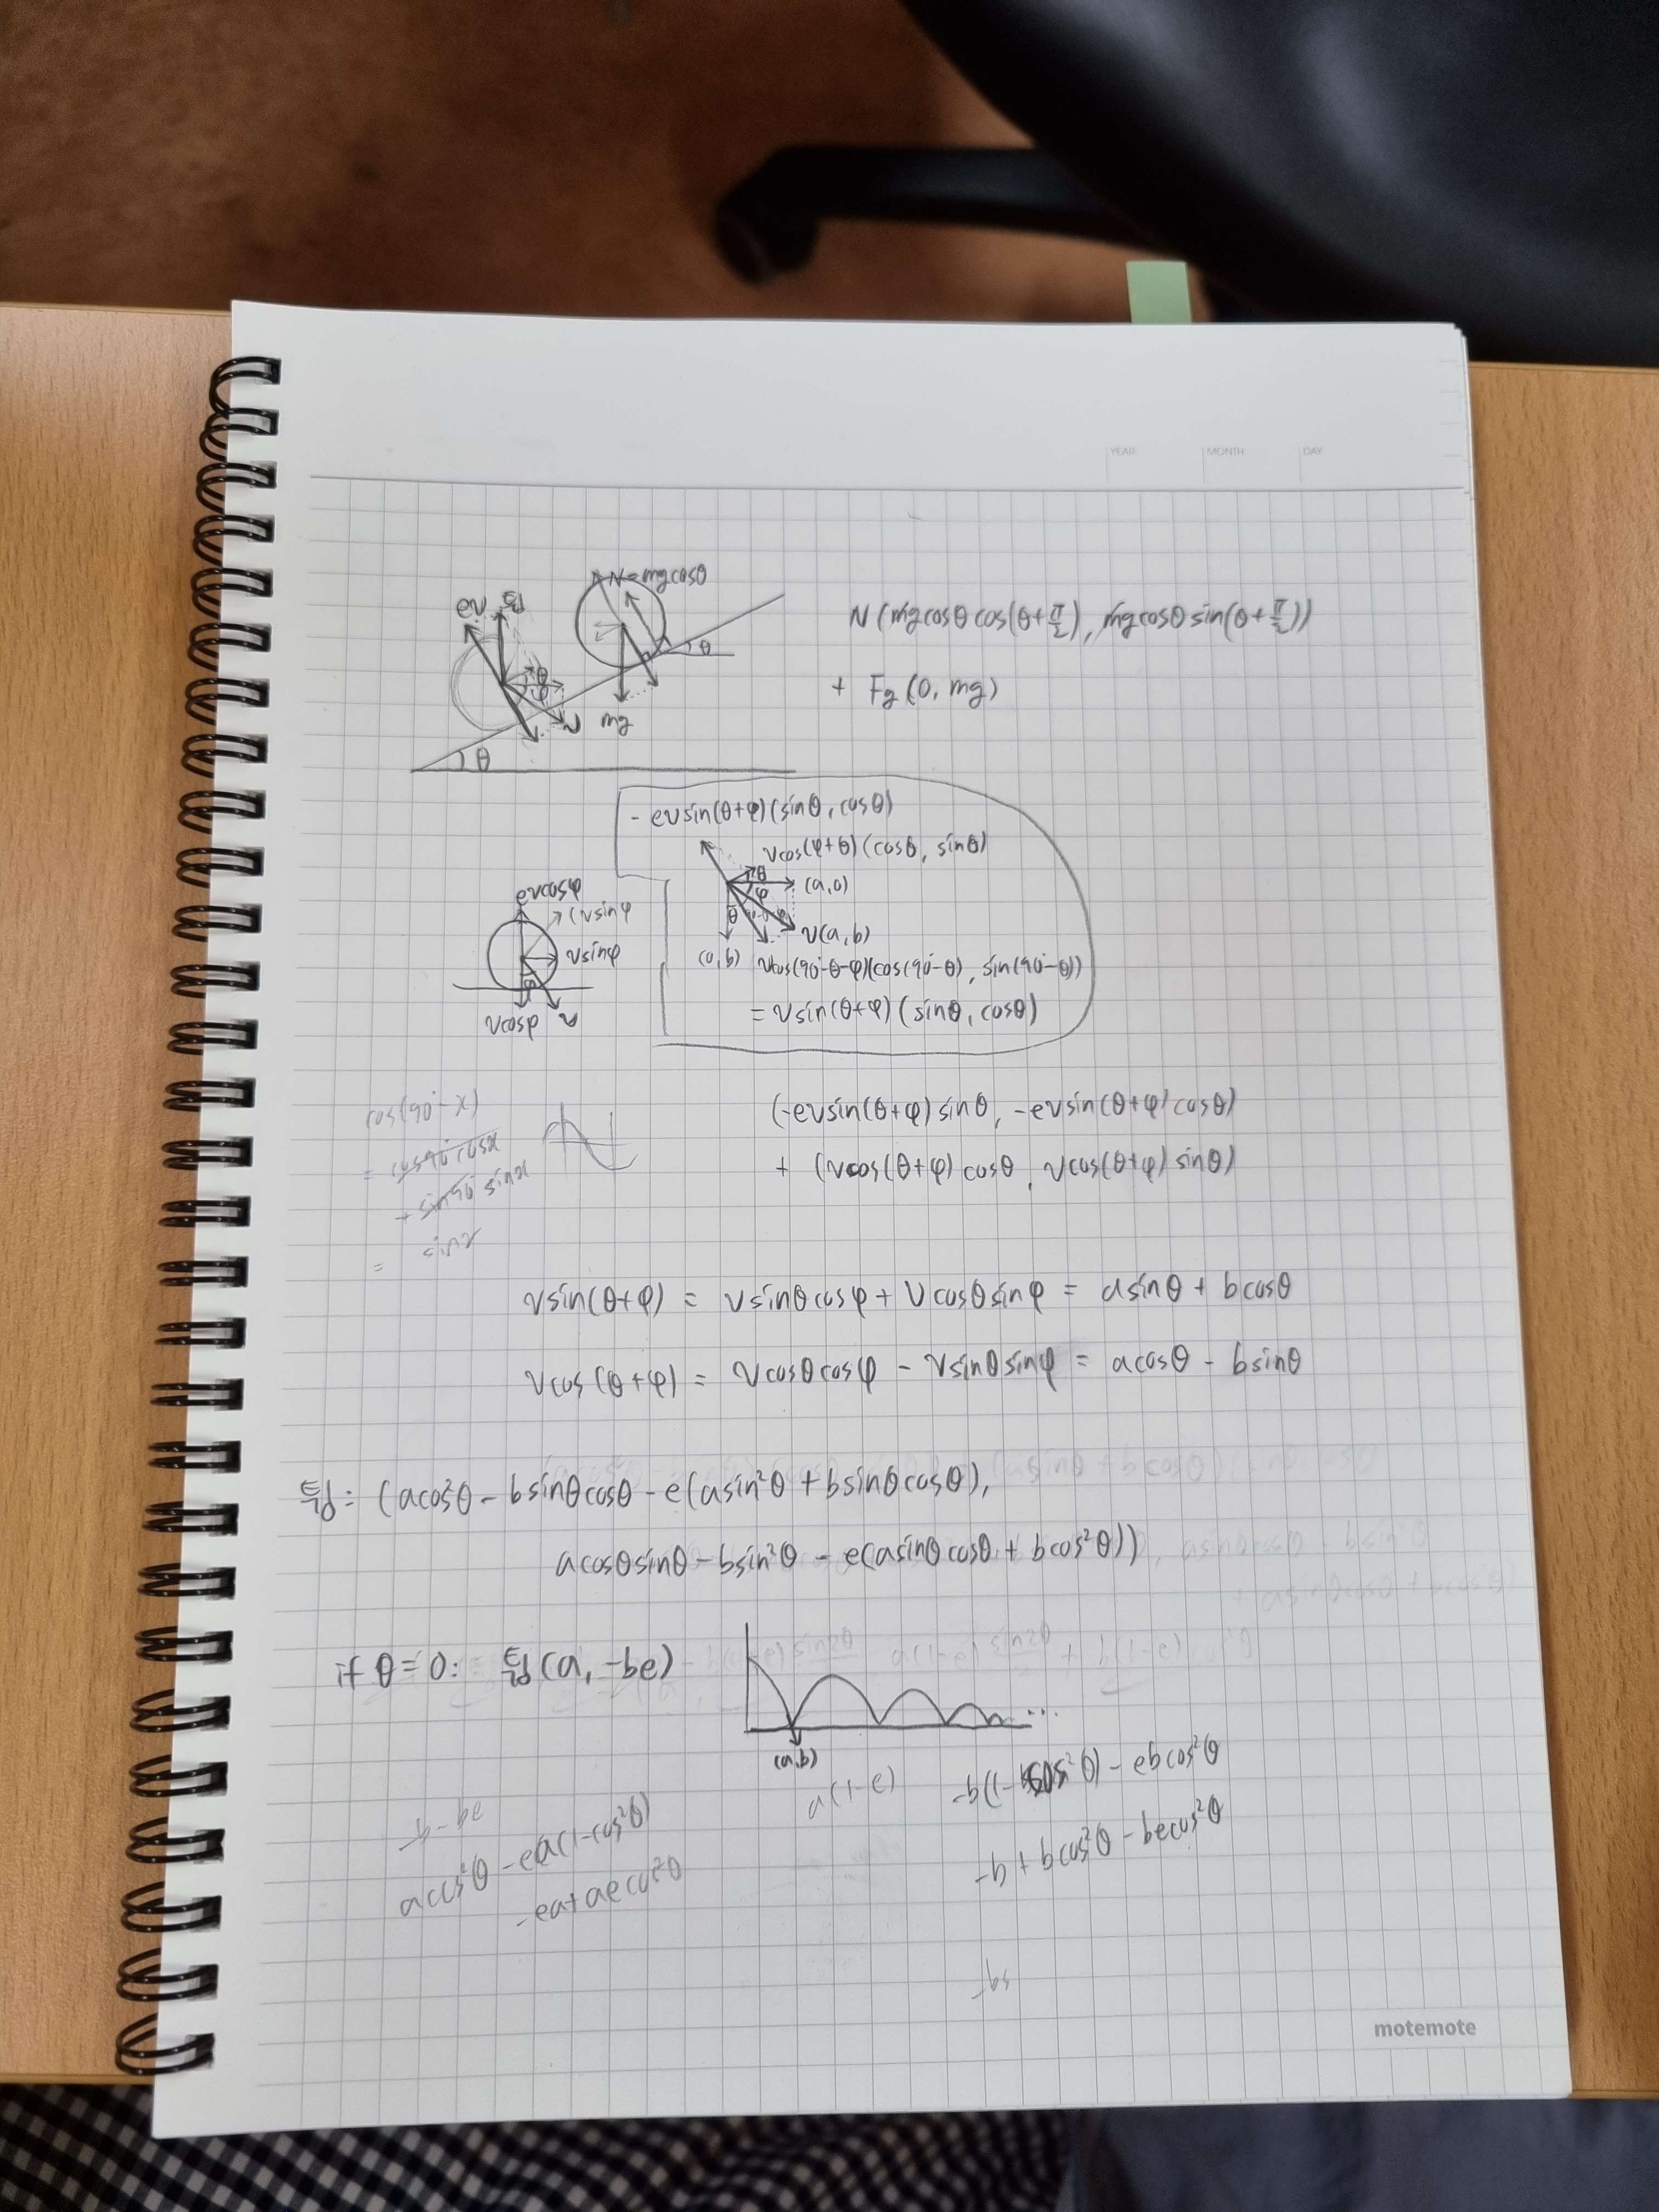 YEAR MONTH DAY
N=mgcosθ
θ
mg
θ
φ
v
θ
N(mgcosθcos(θ+π/2), mgcosθsin(θ+π/2))
+ Fg(0, mg)
-evsin(θ+φ)(sinθ, cosθ)
vcos(φ+θ)(cosθ, sinθ)
θ
(a,0)
φ
θ
v(a,b)
(0,b)
vcos(90°-θ-φ)(cos(90°-θ), sin(90°-θ))
=vsin(θ+φ)(sinθ, cosθ)
evcosφ
vsinφ
vsinφ
vcosφ
v
cos(90°-x)
= cos90°cosx
+ sin90°sinx
= sinx
(-evsin(θ+φ)sinθ, -evsin(θ+φ)cosθ)
+ (vcos(θ+φ)cosθ, vcos(θ+φ)sinθ)
vsin(θ+φ) = vsinθcosφ + vcosθsinφ = asinθ + bcosθ
vcos(θ+φ) = vcosθcosφ - vsinθsinφ = acosθ - bsinθ
팅: (acos²θ - bsinθcosθ - e(asin²θ + bsinθcosθ),
acosθsinθ - bsin²θ - e(asinθcosθ + bcos²θ))
if θ=0: 팅(a, -be)
...
(a,b)
a(1-e)
-b(1-cos²θ) - ebcos²θ
-b + bcos²θ - becos²θ
-b-be
acos²θ - ea(1-cos²θ)
-ea+aecos²θ
motemote